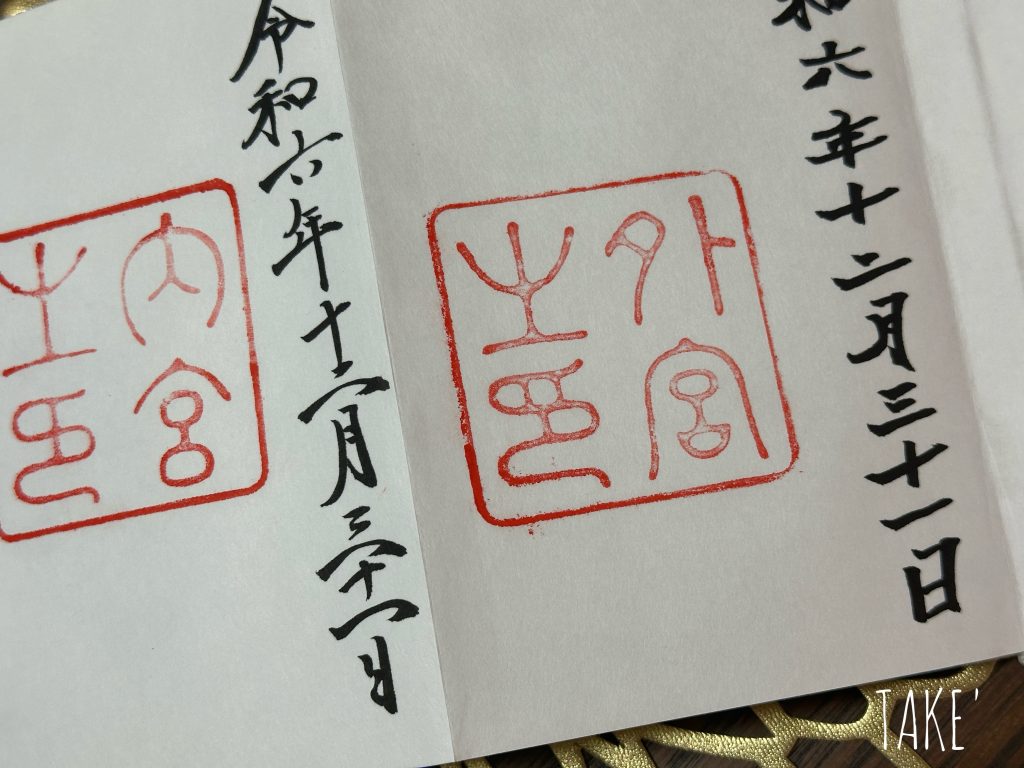 和六年十二月三十一日
外宮
之印
令和六年十二月三十一日
内宮
之印
TAKE'